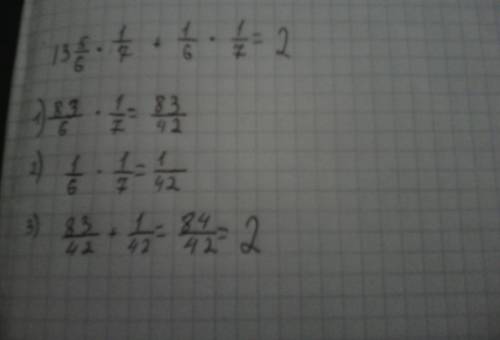 13 5/6 · 1/7 + 1/6 · 1/7 = 2
1) 83/6 · 1/7 = 83/42
2) 1/6 · 1/7 = 1/42
3) 83/42 + 1/42 = 84/42 = 2